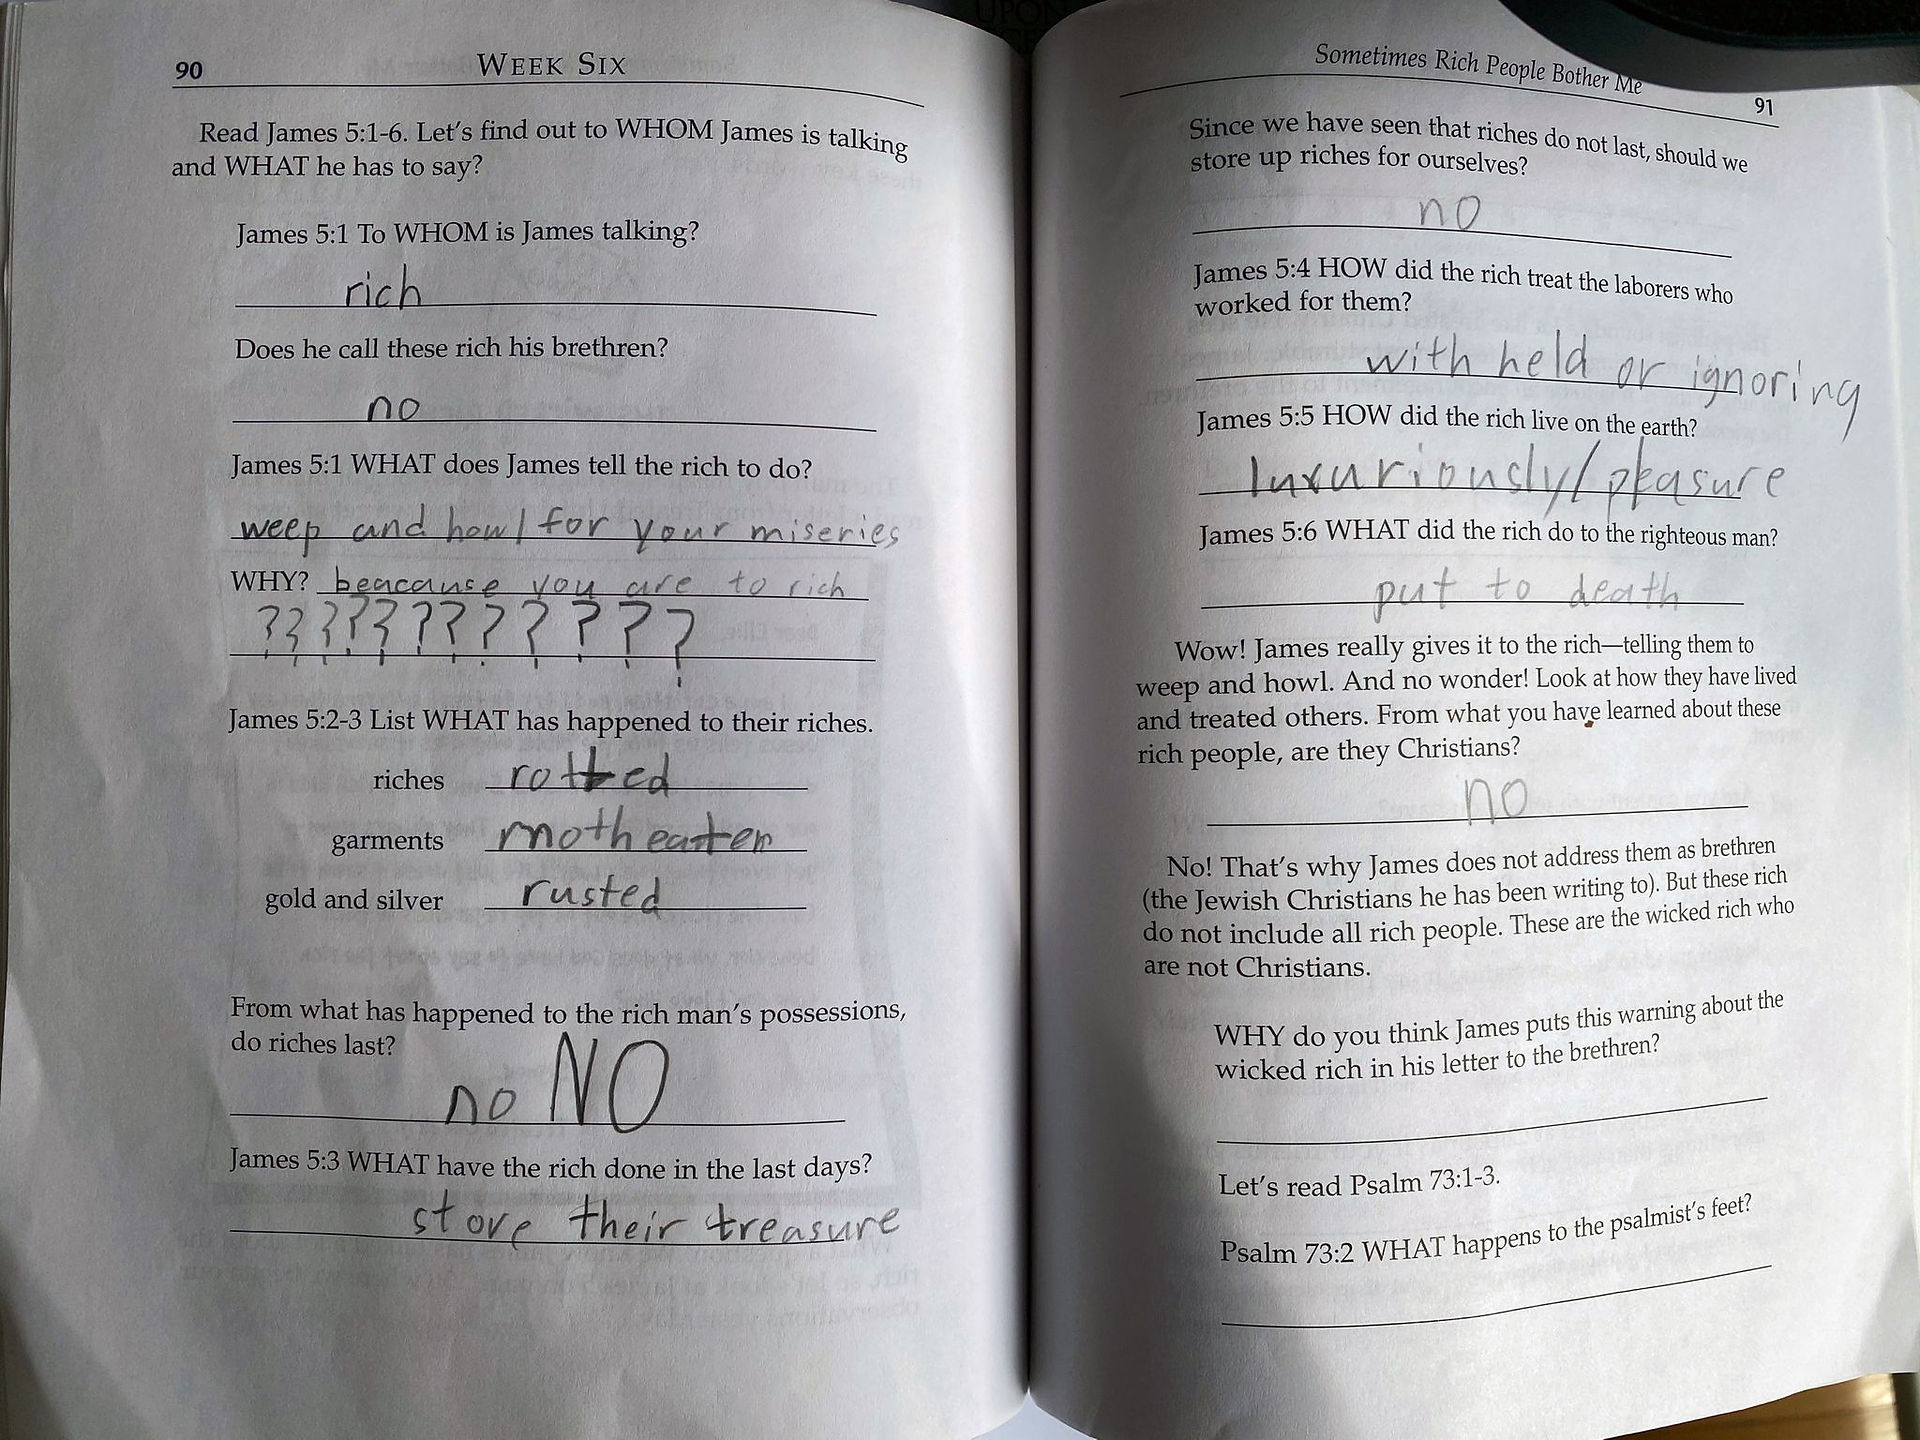 90
WEEK SIX
Read James 5:1-6. Let's find out to WHOM James is talking
and WHAT he has to say?
James 5:1 To WHOM is James talking?
rich
Does he call these rich his brethren?
no
James 5:1 WHAT does James tell the rich to do?
weep and howl for your miseries
WHY? beacause you are to rich
????????????
James 5:2-3 List WHAT has happened to their riches.
riches rotted
garments moth eaten
gold and silver rusted
From what has happened to the rich man's possessions,
do riches last?
no NO
James 5:3 WHAT have the rich done in the last days?
store their treasure
Sometimes Rich People Bother Me
91
Since we have seen that riches do not last, should we
store up riches for ourselves?
no
James 5:4 HOW did the rich treat the laborers who
worked for them?
with held or ignoring
James 5:5 HOW did the rich live on the earth?
luxuriously/pleasure
James 5:6 WHAT did the rich do to the righteous man?
put to death
Wow! James really gives it to the rich—telling them to
weep and howl. And no wonder! Look at how they have lived
and treated others. From what you have learned about these
rich people, are they Christians?
no
No! That's why James does not address them as brethren
(the Jewish Christians he has been writing to). But these rich
do not include all rich people. These are the wicked rich who
are not Christians.
WHY do you think James puts this warning about the
wicked rich in his letter to the brethren?
Let's read Psalm 73:1-3.
Psalm 73:2 WHAT happens to the psalmist's feet?